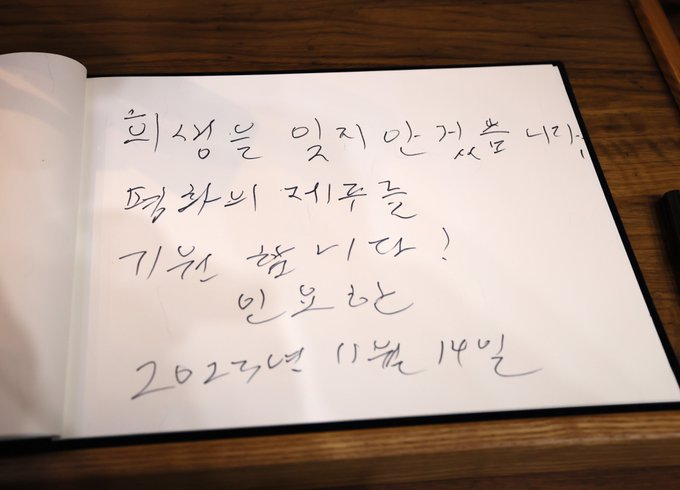 희생을 잊지 안겠씀니다!
평화의 제주를
기원 함니다!
인요한
2023년 11월 14일